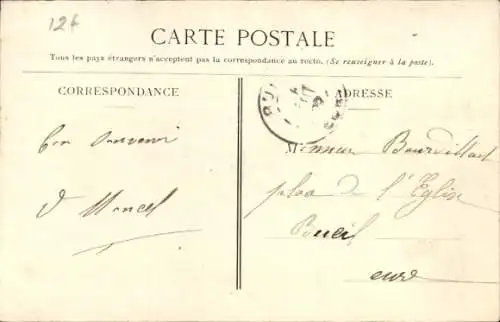 12f
CARTE POSTALE
Tous les pays étrangers n'acceptent pas la correspondance au recto. (Se renseigner à la poste).
CORRESPONDANCE
ADRESSE
Bon Souvenir
Monsieur Bourdillat
D Marcel
place de l'Eglise
Bueil
eure